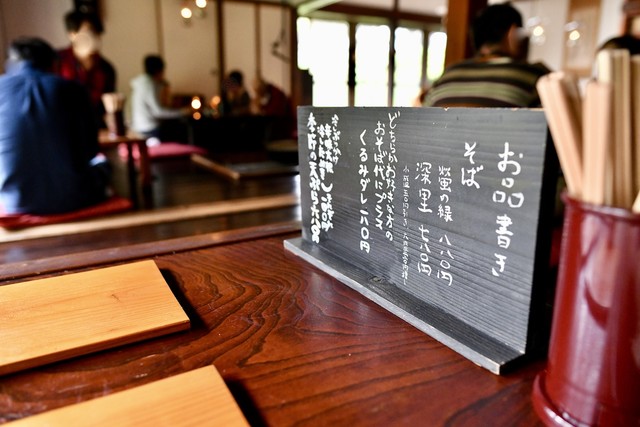 お品書き
そば
螢の緑 八八〇円
深里 七八〇円
どちらかお好きな方の
おそば代にプラス
くるみダレ 二八〇円
季節の天ぷら 六八〇円